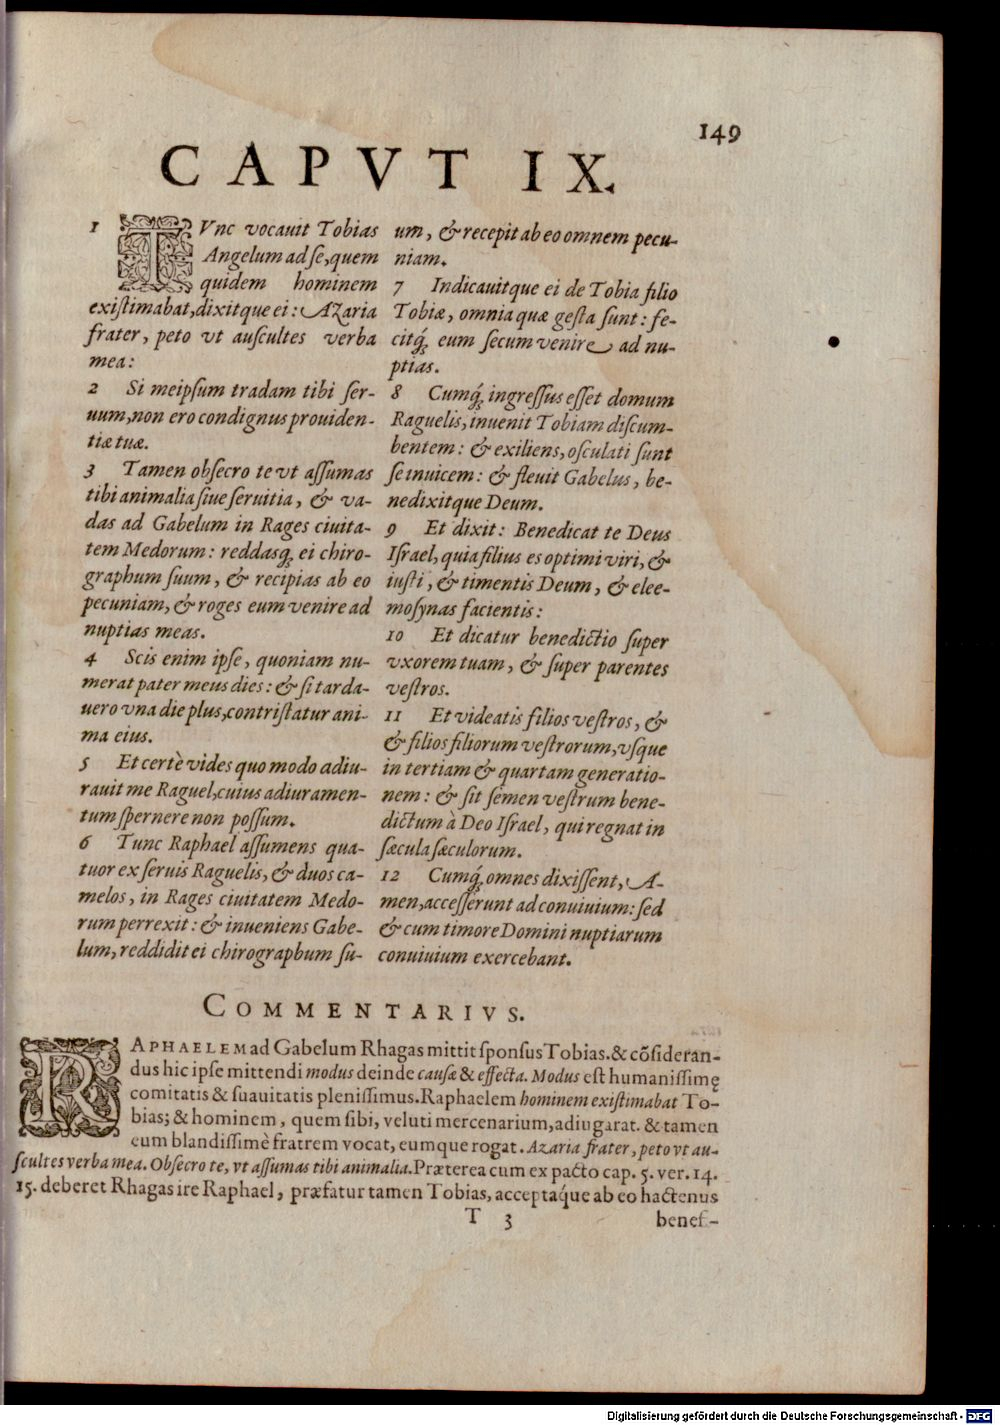 149
CAPVT IX.
1 TVnc vocauit Tobias
Angelum ad se, quem
quidem hominem
existimabat, dixitque ei: Azaria
frater, peto vt auscultes verba
mea:
2 Si meipsum tradam tibi ser-
uum, non ero condignus prouiden-
tiæ tuæ.
3 Tamen obsecro te vt assumas
tibi animalia siue seruitia, & va-
das ad Gabelum in Rages ciuita-
tem Medorum: reddasq́ ei chiro-
graphum suum, & recipias ab eo
pecuniam, & roges eum venire ad
nuptias meas.
4 Scis enim ipse, quoniam nu-
merat pater meus dies: & si tarda-
uero vna die plus, contristatur ani-
ma eius.
5 Et certè vides quo modo adiu-
rauit me Raguel, cuius adiuramen-
tum spernere non possum.
6 Tunc Raphael assumens qua-
tuor ex seruis Raguelis, & duos ca-
melos, in Rages ciuitatem Medo-
rum perrexit: & inueniens Gabe-
lum, reddidit ei chirographum su-
um, & recepit ab eo omnem pecu-
niam.
7 Indicauitque ei de Tobia filio
Tobiæ, omnia quæ gesta sunt: fe-
citq́ eum secum venire ad nu-
ptias.
8 Cumq́ ingressus esset domum
Raguelis, inuenit Tobiam discum-
bentem: & exiliens, osculati sunt
se inuicem: & fleuit Gabelus, be-
nedixitque Deum.
9 Et dixit: Benedicat te Deus
Israel, quia filius es optimi viri, &
iusti, & timentis Deum, & elee-
mosynas facientis:
10 Et dicatur benedictio super
vxorem tuam, & super parentes
vestros.
11 Et videatis filios vestros, &
& filios filiorum vestrorum, vsque
in tertiam & quartam generatio-
nem: & sit semen vestrum bene-
dictum à Deo Israel, qui regnat in
sæcula sæculorum.
12 Cumq́ omnes dixissent, A-
men, accesserunt ad conuiuium: sed
& cum timore Domini nuptiarum
conuiuium exercebant.
COMMENTARIVS.
RAPHAELEM ad Gabelum Rhagas mittit sponsus Tobias. & cõsideran-
dus hic ipse mittendi modus deinde causæ & effecta. Modus est humanissimę
comitatis & suauitatis plenissimus. Raphaelem hominem existimabat To-
bias; & hominem, quem sibi, veluti mercenarium, adiugarat. & tamen
eum blandissimè fratrem vocat, eumque rogat. Azaria frater, peto vt au-
scultes verba mea. Obsecro te, vt assumas tibi animalia. Præterea cum ex pacto cap. 5. ver. 14.
15. deberet Rhagas ire Raphael, præfatur tamen Tobias, acceptaq́ue ab eo hactenus
T 3 benef-
Digitalisierung gefördert durch die Deutsche Forschungsgemeinschaft - DFG